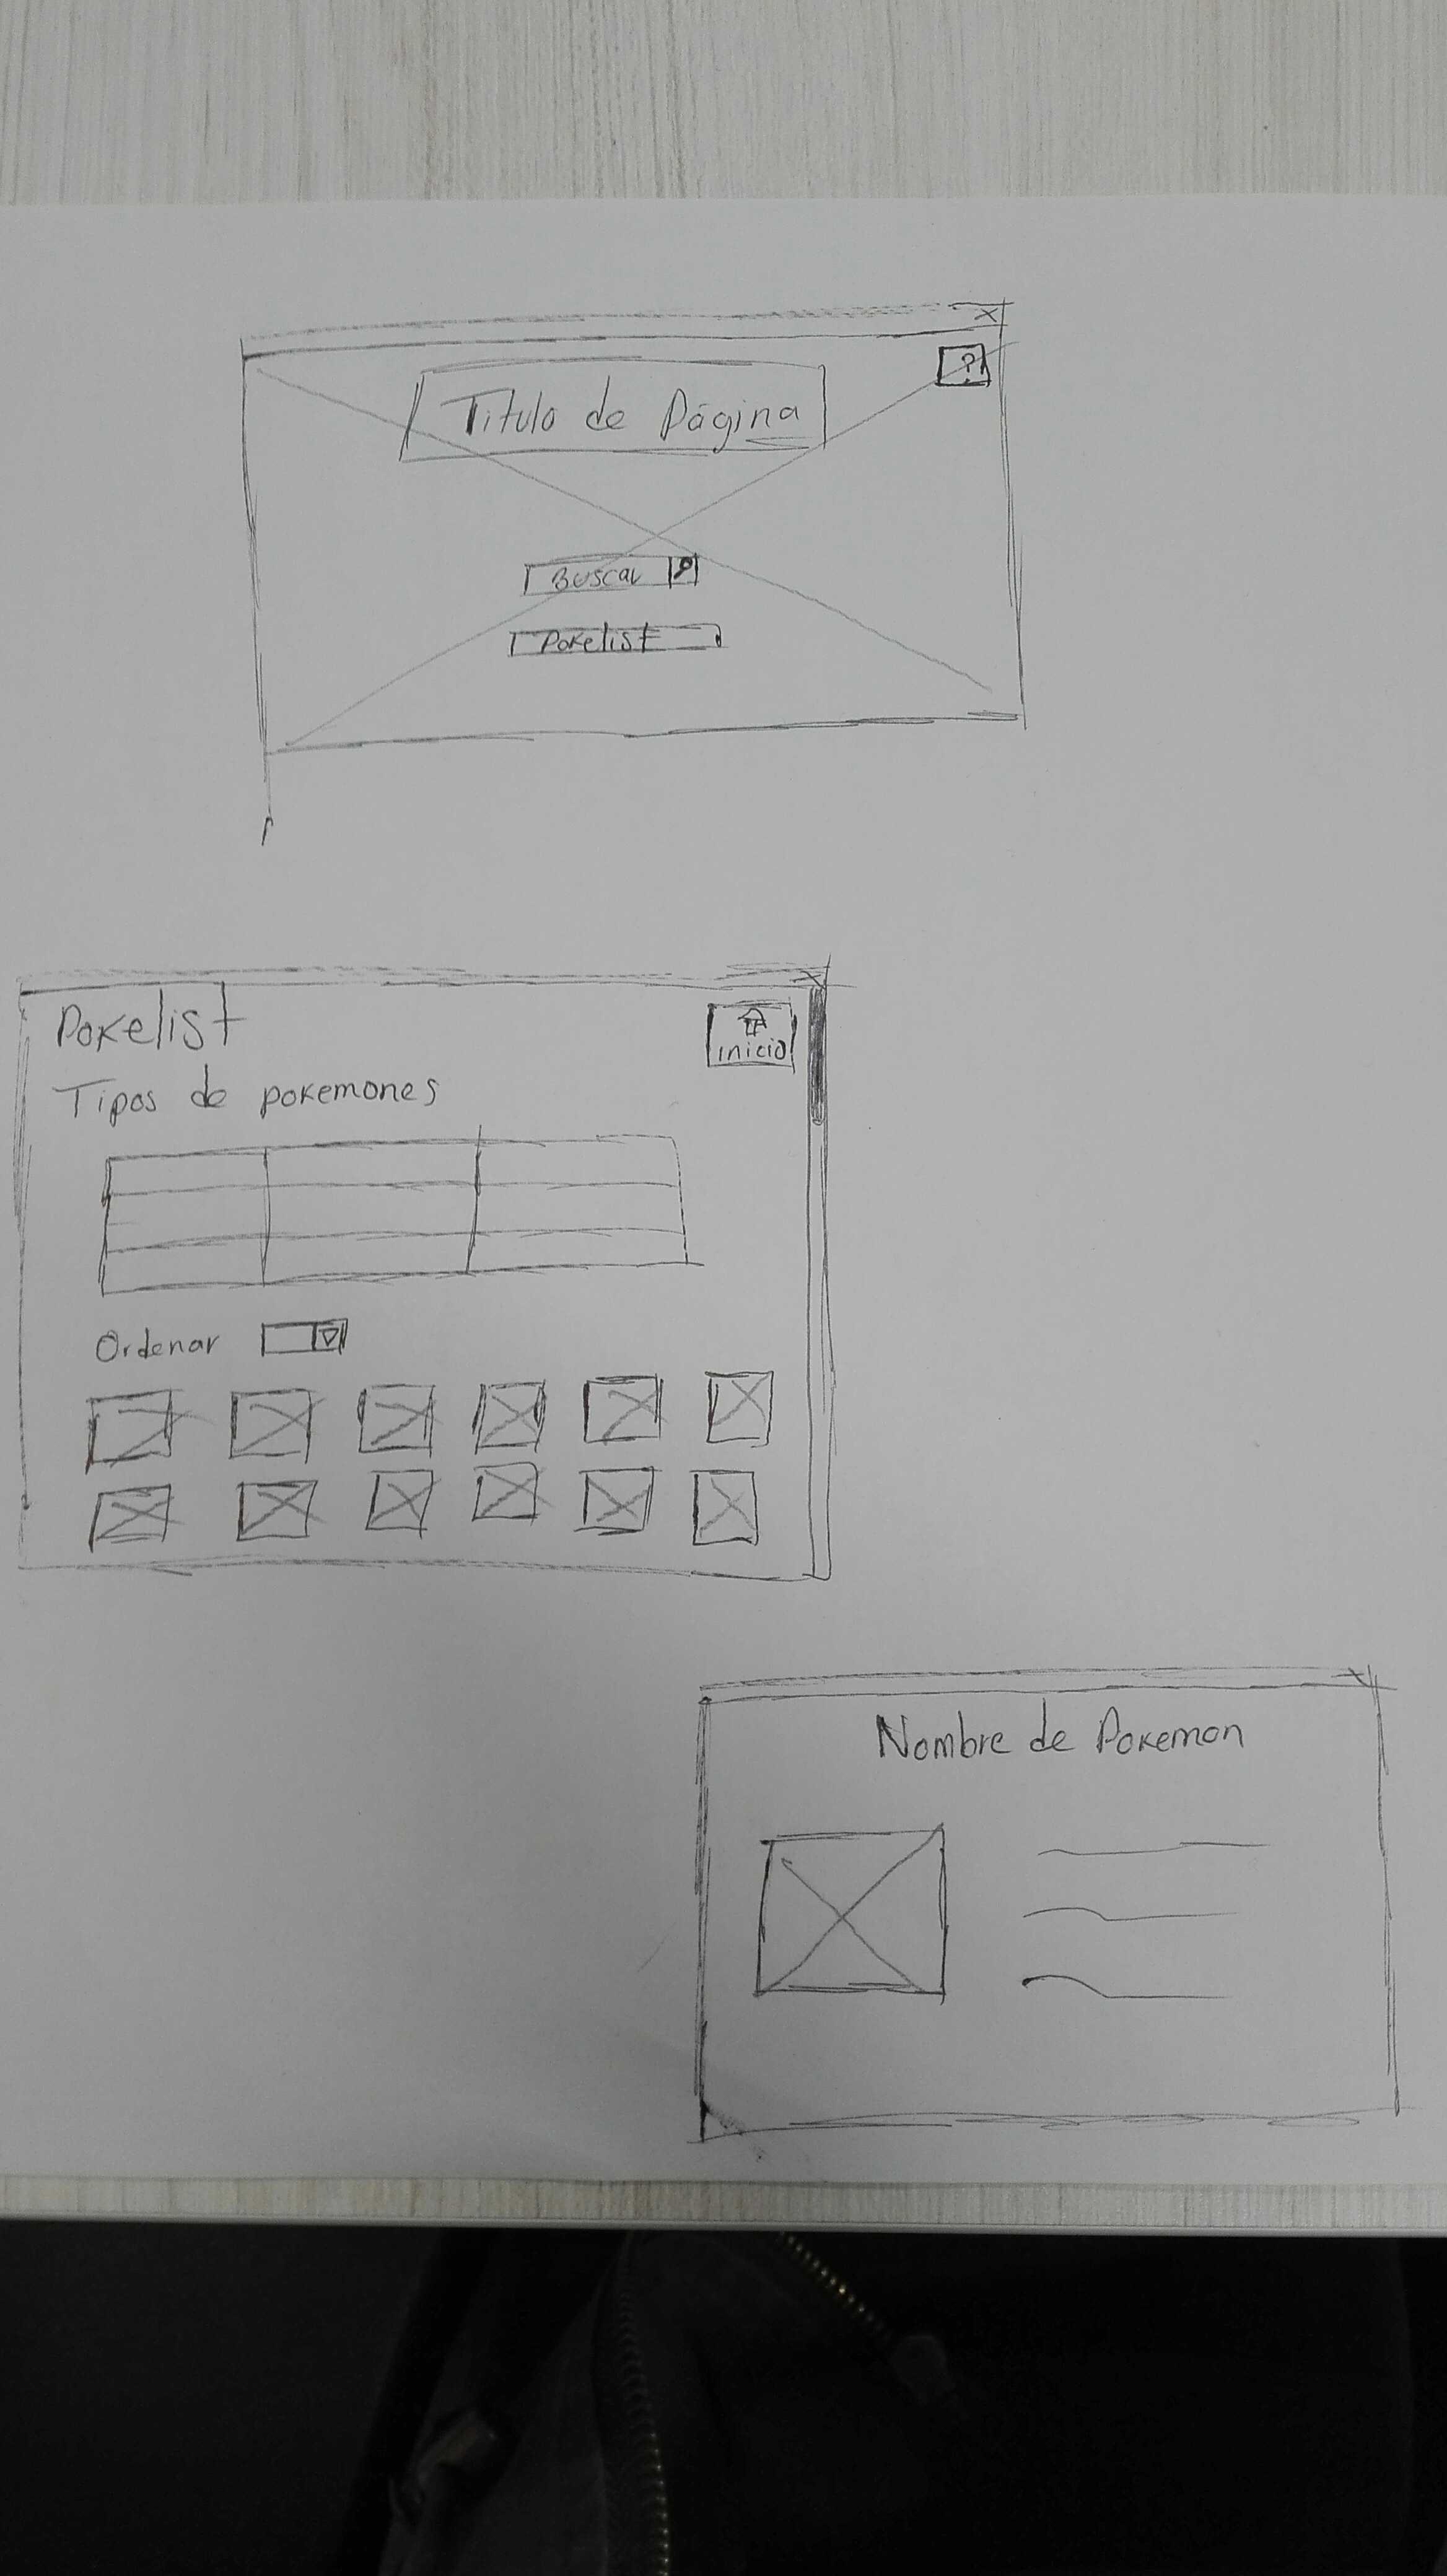 Titulo de Página
?
Buscar
Pokelist
Pokelist
inicio
Tipos de pokemones
Ordenar
Nombre de Pokemon